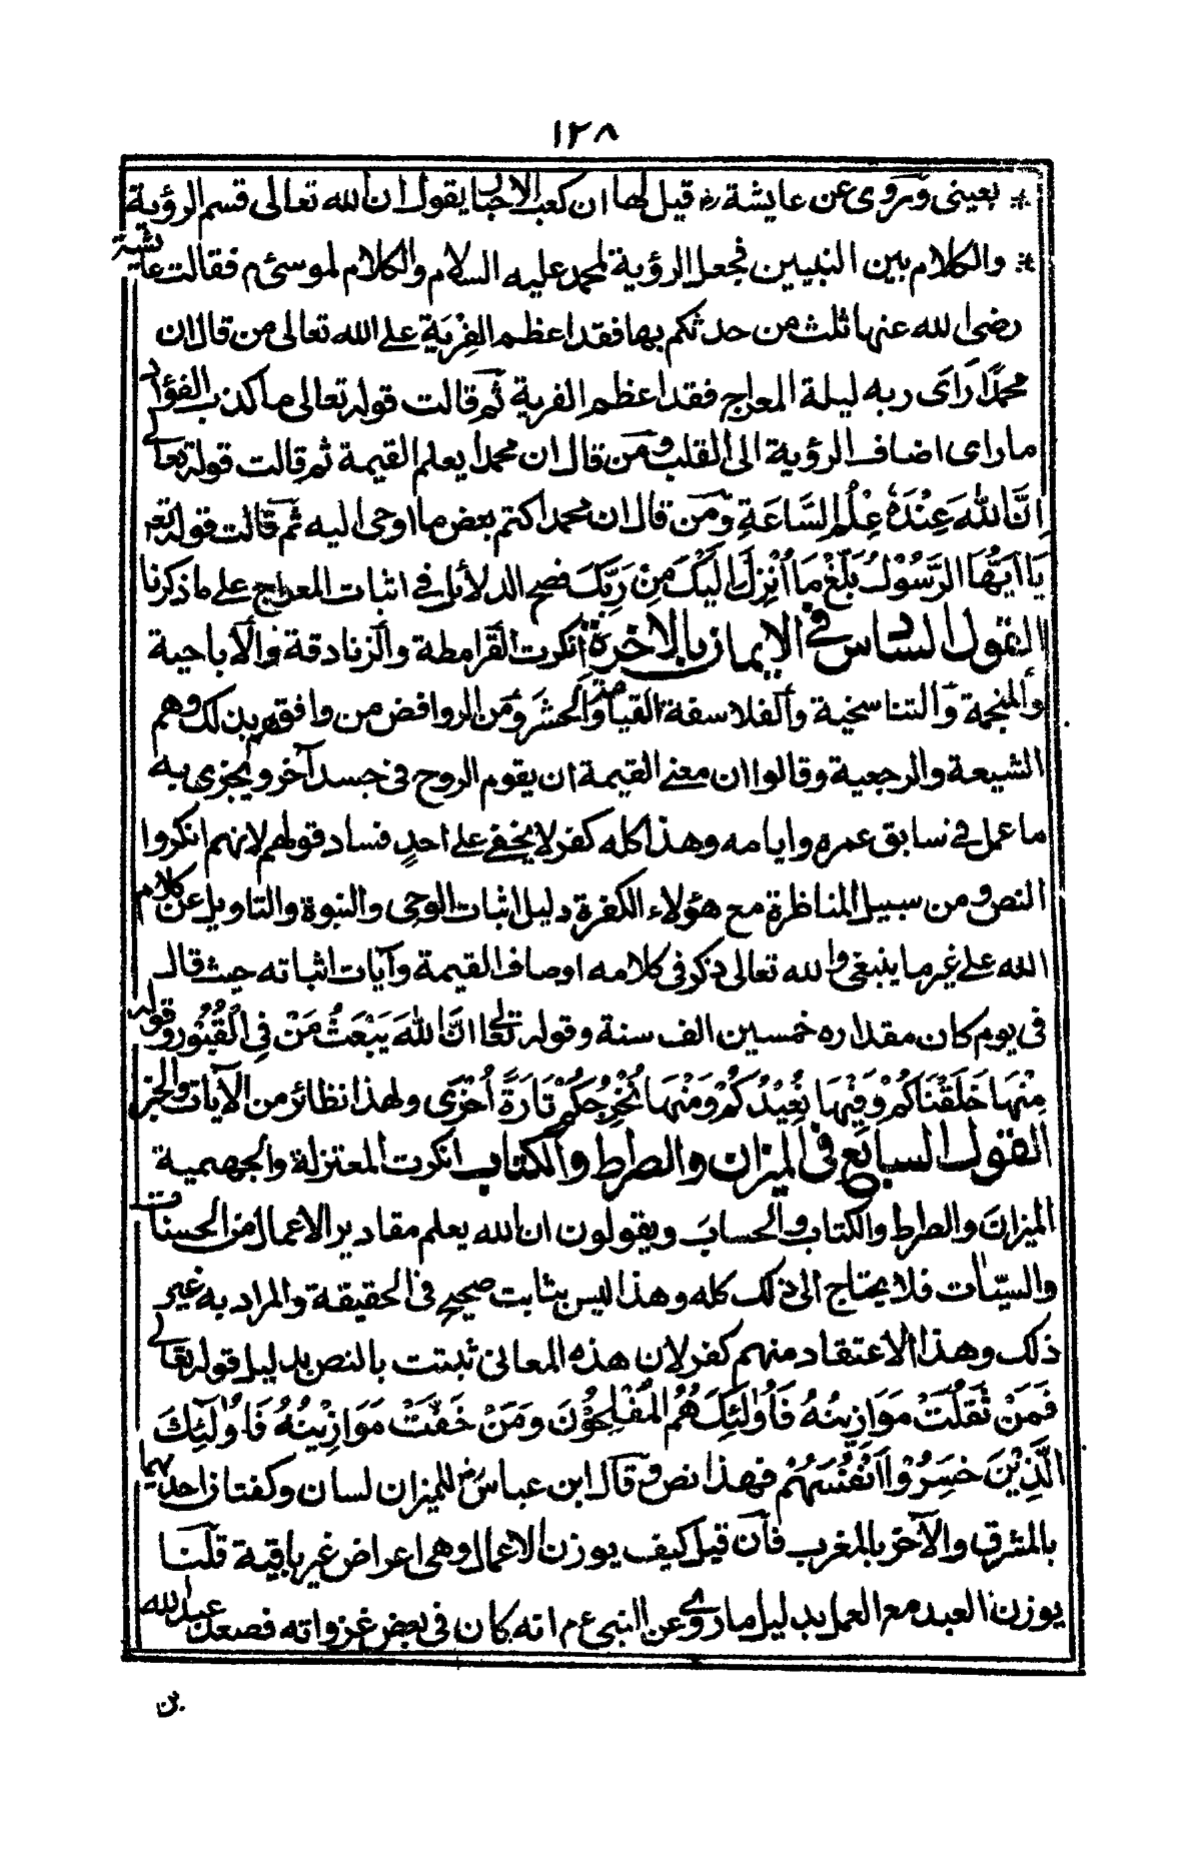 ١٢٨
* بعينى وتروى عن عايشة رض قيل لها ان كعب الاحبار يقول ان الله تعالى قسم الرؤية
* والكلام بين النبيين فجعل الرؤية لمحمد عليه السلام والكلام لموسى م فقالت عايشة
رضى الله عنها ثلث من حدثكم بها فقد اعظم الفِرْيَة على الله تعالى من قال ان
محمدًا رَاى ربه ليلة المعراج فقد اعظم الفرية ثم قالت قوله تعالى ما كذب الفؤاد
ما راى اضاف الرؤية الى القلب ومن قال ان محمدا يعلم القيمة ثم قالت قوله تعالى
اِنَّ اللهَ عِنْدَهُ عِلْمُ السَّاعَةِ ومن قال ان محمدا كتم بعض ما اوحى اليه ثم قالت قوله تع
يَا اَيُّهَا الرَّسُوْلُ بَلِّغْ مَا اُنْزِلَ اِلَيْكَ مِنْ رَبِّكَ فصح الدلائل فى اثبات المعراج على ما ذكرنا
القول السادس فى الايمان بالاخرة انكرت القرامطة والزنادقة والاباحية
والمنجمة والتناسخية والفلاسفة القيامة والحشر ومن الروافض من وافقهم بذلك وهم
الشيعة والرجعية وقالوا ان معنى القيمة ان يقوم الروح فى جسد آخر ويجزى به
ما عمل فى سابق عمره وايامه وهذا كله كفر لا يخفى على احدٍ فساد قولهم لانهم انكروا
النص ومن سبيل المناظرة مع هؤلاء الكفرة دليل اثبات الوحى والنبوة والتاويل عن كلام
الله على غير ما ينبغى والله تعالى ذكر فى كلامه اوصاف القيمة وآيات اثباته حيث قال
فى يوم كان مقداره خمسين الف سنة وقوله تعالى اِنَّ اللهَ يَبْعَثُ مَنْ فِى الْقُبُوْرِ وقوله
مِنْهَا خَلَقْنَاكُمْ وَفِيْهَا نُعِيْدُكُمْ وَمِنْهَا نُخْرِجُكُمْ تَارَةً اُخْرَى ولهذا نظائر من الآيات والخبر
القول السابع فى الميزان والصراط والكتاب انكرت المعتزلة والجهمية
الميزان والصراط والكتاب والحساب ويقولون ان الله يعلم مقادير الاعمال من الحسنات
والسيّات فلا يحتاج الى ذلك كله وهذا ليس بثابت صحيح فى الحقيقة والمراد به غير
ذلك وهذا الاعتقاد منهم كفر لان هذه المعانى ثبتت بالنص بدليل قوله تعالى
فَمَنْ ثَقُلَتْ مَوَازِيْنُهُ فَاُولٰئِكَ هُمُ الْمُفْلِحُوْنَ وَمَنْ خَفَّتْ مَوَازِيْنُهُ فَاُولٰئِكَ
الَّذِيْنَ خَسِرُوْا اَنْفُسَهُمْ فهذا نص وقال ابن عباس رض للميزان لسان وكفتان احديهما
بالمشرق والآخر بالمغرب فأن قيل كيف يوزن الاعمال وهى اعراض غير باقية قلنا
يوزن العبد مع العمل بدليل ما روى عن النبى ع م انه كان فى بعض غزواته فصعد عبد الله
بن